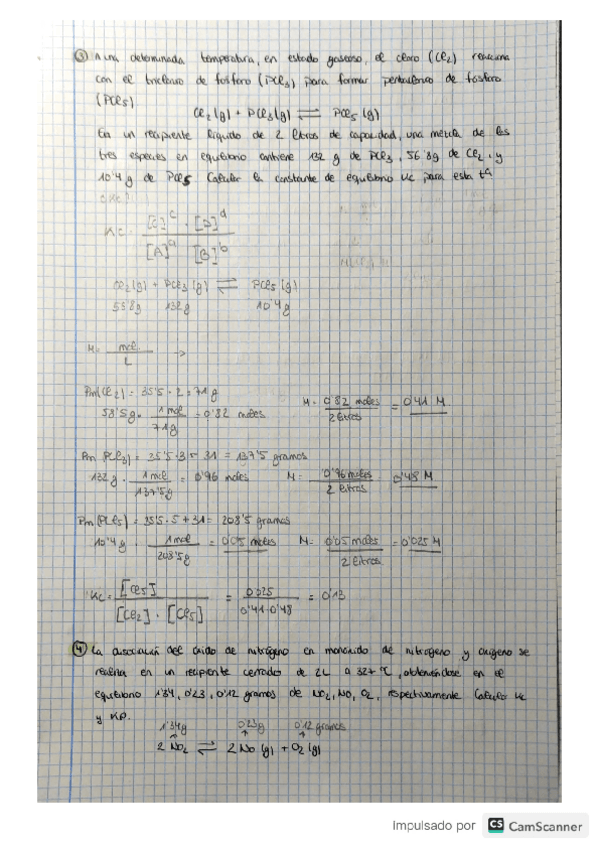 ③ A una determinada temperatura, en estado gaseoso, el cloro (Cl2) reacciona
con el tricloruro de fósforo (PCl3) para formar pentacloruro de fósforo
(PCl5)
Cl2(g) + PCl3(g) ⇌ PCl5(g)
En un recipiente líquido de 2 litros de capacidad, una mezcla de las
tres especies en equilibrio contiene 132 g de PCl3, 56'8g de Cl2, y
10'4 g de PCl5 Calcular la constante de equilibrio Kc para esta tª
¿Kc?
Kc = [C]^c · [D]^d / [A]^a [B]^b
Cl2(g) + PCl3(g) ⇌ PCl5(g)
132g 10'4g
M = mol / L →
Pm(Cl2) = 35'5 · 2 = 71 g
58'5g · 1 mol / 71g = 0'82 moles M = 0'82 moles / 2 litros = 0'41 M
Pm (PCl3) = 35'5·3 + 31 = 137'5 gramos
132 g · 1 mol / 137'5g = 0'96 moles M = 0'96 moles / 2 litros = 0'48 M
Pm (PCl5) = 35'5 · 5 + 31 = 208'5 gramos
10'4 g · 1 mol / 208'5g = 0'05 moles M = 0'05 moles / 2 litros = 0'025 M
Kc = [Cl5] / [Cl2] · [Cl5] = 0'025 / 0'41·0'48 = 0'13
④ La disociación del óxido de nitrógeno en monóxido de nitrógeno y oxígeno se
realiza en un recipiente cerrado de 2L a 327 ºC, obteniéndose en el
equilibrio 1'34, 0'23, 0'12 gramos de NO2, NO, O2, respectivamente Calcular Kc
y KP.
1'34g 0'23g 0'12 gramos
2 NO2 ⇌ 2 NO (g) + O2 (g)
Impulsado por CS CamScanner